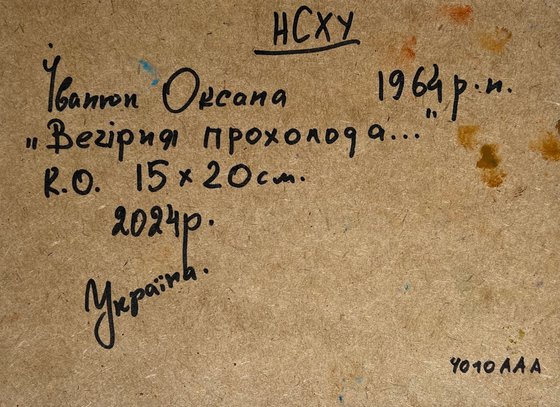 НСХУ
Іванюк Оксана 1964 р.н.
„Вечірня прохолода..."
К.О. 15 x 20 см.
2024р.
Україна.
4010AAA